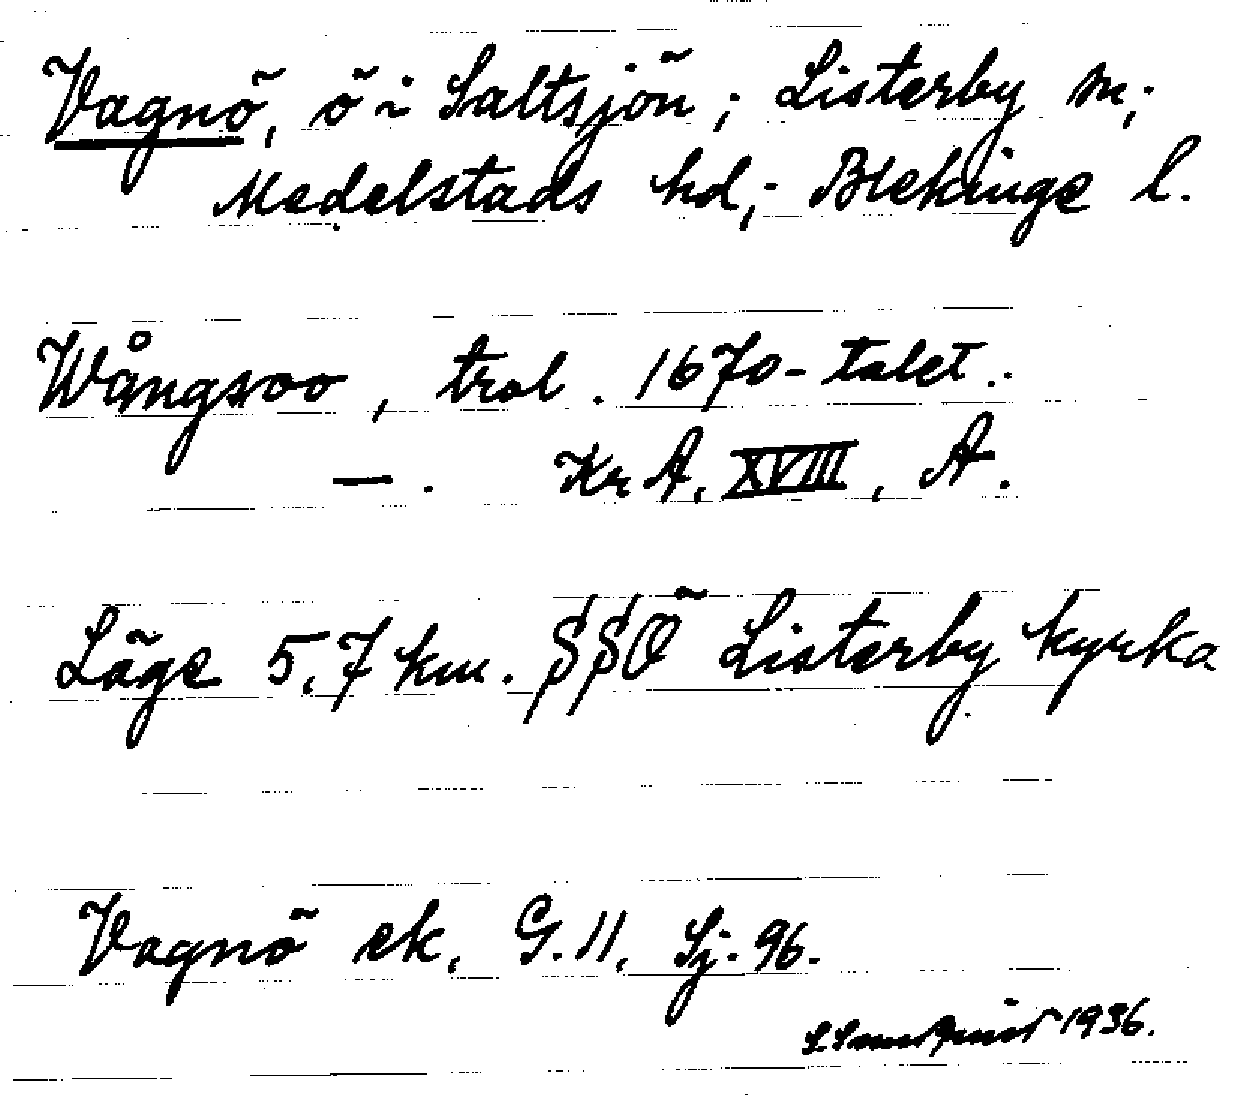 Vagnö, ö i Saltsjön; Listerby sn;
Medelstads hd; Blekinge l.
Wångsoo, trol. 1670-talet.
—. Kr A, XVIII, A.
Läge 5,7 km. SSÖ Listerby kyrka
Vagnö ek, G. 11, Sj. 96.
1936.